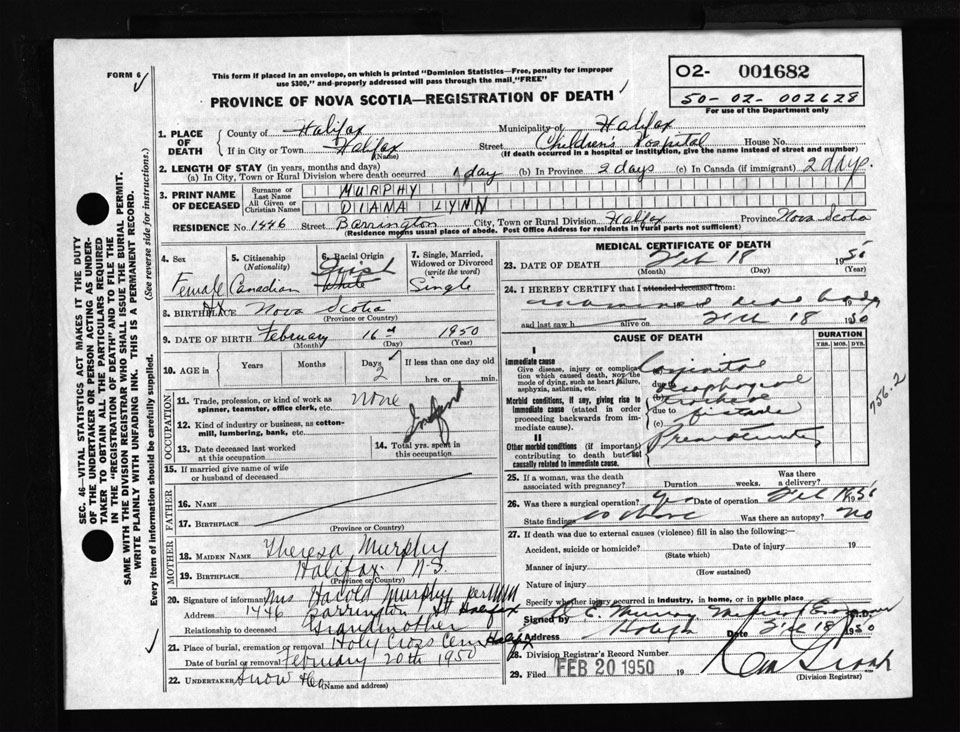 FORM 6
This form if placed in an envelope, on which is printed "Dominion Statistics—Free, penalty for improper
use $300," and properly addressed will pass through the mail, "FREE"
PROVINCE OF NOVA SCOTIA—REGISTRATION OF DEATH
02- 001682
50-02-002628
For use of the Department only
1. PLACE OF DEATH
County of Halifax Municipality of Halifax
If in City or Town Halifax (Name) Street Children's Hospital House No.
(If death occurred in a hospital or institution, give the name instead of street and number)
2. LENGTH OF STAY (in years, months and days)
(a) In City, Town or Rural Division where death occurred 1 day (b) In Province 2 days (c) In Canada (if immigrant) 2 days.
3. PRINT NAME OF DECEASED
Surname or Last Name MURPHY
All Given or Christian Names DIANA LYNN
RESIDENCE No. 1446 Street Barrington City, Town or Rural Division Halifax Province Nova Scotia
(Residence means usual place of abode. Post Office Address for residents in rural parts not sufficient)
4. Sex Female
5. Citizenship (Nationality) Canadian
6. Racial Origin Irish White
7. Single, Married, Widowed or Divorced (write the word) Single
8. BIRTHPLACE Nova Scotia
(Province or Country)
9. DATE OF BIRTH February 16 1950
(Month) (Day) (Year)
10. AGE in Years Months Days 2 If less than one day old
hrs. or min.
OCCUPATION
11. Trade, profession, or kind of work as spinner, teamster, office clerk, etc. none
12. Kind of industry or business, as cotton-mill, lumbering, bank, etc.
Infant
13. Date deceased last worked at this occupation
14. Total yrs. spent in this occupation
15. If married give name of wife or husband of deceased
FATHER
16. NAME
17. BIRTHPLACE
(Province or Country)
MOTHER
18. MAIDEN NAME Theresa Murphy
19. BIRTHPLACE Halifax N.S.
(Province or Country)
20. Signature of informant Mrs Harold Murphy per
Address 1446 Barrington St Halifax
Relationship to deceased Grandmother
21. Place of burial, cremation or removal Holy Cross Cem Halifax
Date of burial or removal February 20th 1950
22. UNDERTAKER Snow &Co.
(Name and address)
MEDICAL CERTIFICATE OF DEATH
23. DATE OF DEATH Feb 18 1950
(Month) (Day) (Year)
24. I HEREBY CERTIFY that I attended deceased from:
examined dead body 19
and last saw h alive on Feb 18 1950
CAUSE OF DEATH
DURATION
YRS. MOS. DYS.
I
Immediate cause
Give disease, injury or complication which caused death, NOT the mode of dying, such as heart failure, asphyxia, asthenia, etc.
Morbid conditions, if any, giving rise to immediate cause (stated in order proceeding backwards from immediate).
II
Other morbid conditions (if important) contributing to death but not causally related to immediate cause.
(a)
due to
(b)
due to
(c)
Congenital
Oesophageal
Tracheal
fistula
Prematurity
756.2
25. If a woman, was the death associated with pregnancy? Duration weeks. Was there a delivery?
26. Was there a surgical operation? Yes Date of operation Feb 1950
State findings as above Was there an autopsy? No
27. If death was due to external causes (violence) fill in also the following:—
Accident, suicide or homicide? Date of injury 19
(State which)
Manner of injury
(How sustained)
Nature of injury
Specify whether injury occurred in industry, in home, or in public place
Signed by Murray Medical Examiner M.D.
Address Date Feb 18 1950
28. Division Registrar's Record Number
29. Filed FEB 20 1950 19
(Division Registrar)
SEC. 46—VITAL STATISTICS ACT MAKES IT THE DUTY
OF THE UNDERTAKER OR PERSON ACTING AS UNDER-
TAKER TO OBTAIN ALL THE PARTICULARS REQUIRED
IN THE "REGISTRATION OF DEATH" AND TO FILE THE
SAME WITH THE DIVISION REGISTRAR WHO SHALL ISSUE THE BURIAL PERMIT.
WRITE PLAINLY WITH UNFADING INK. THIS IS A PERMANENT RECORD.
Every item of information should be carefully supplied. (See reverse side for instructions.)